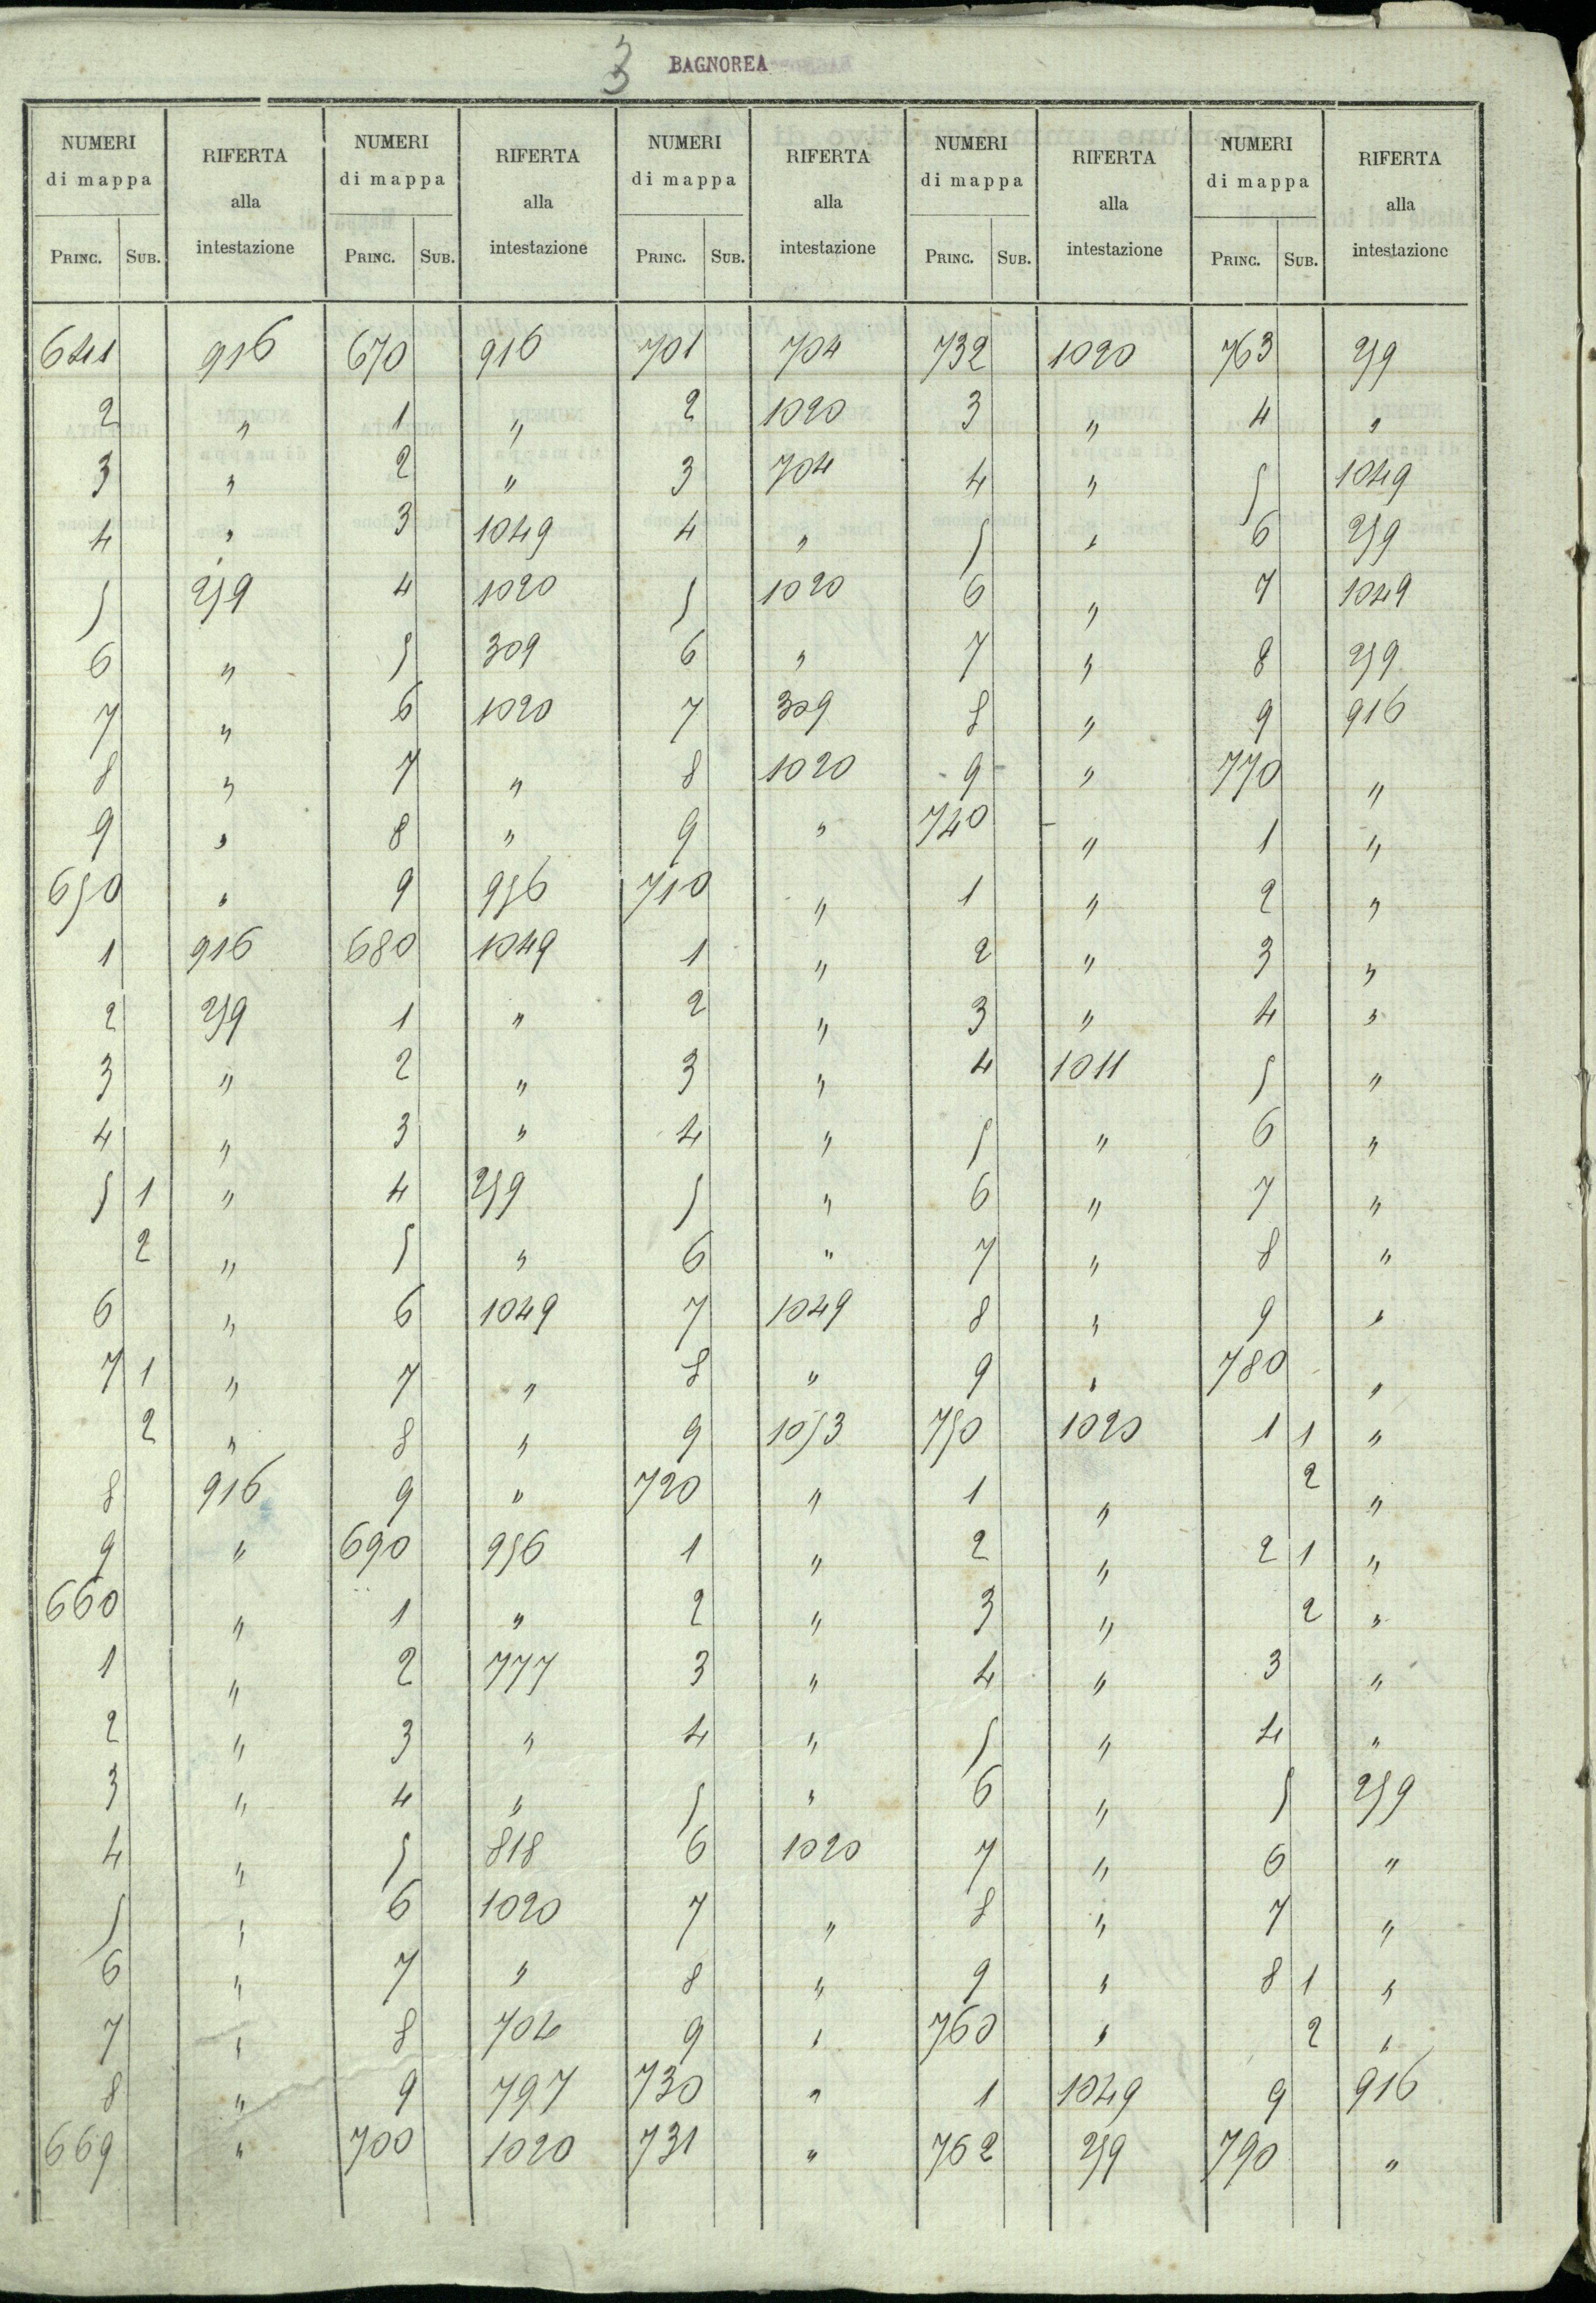 3 BAGNOREA
NUMERI di mappa RIFERTA alla intestazione NUMERI di mappa RIFERTA alla intestazione NUMERI di mappa RIFERTA alla intestazione NUMERI di mappa RIFERTA alla intestazione NUMERI di mappa RIFERTA alla intestazione
PRINC. SUB. PRINC. SUB. PRINC. SUB. PRINC. SUB. PRINC. SUB.
641 916 670 916 701 704 732 1020 763 259
2 " 1 " 2 1020 3 " 4 "
3 " 2 " 3 704 4 " 5 1049
4 " 3 1049 4 " 5 " 6 259
5 259 4 1020 5 1020 6 " 7 1049
6 " 5 309 6 " 7 " 8 259
7 " 6 1020 7 309 8 " 9 916
8 " 7 " 8 1020 9 " 770 "
9 " 8 " 9 " 740 " 1 "
650 " 9 956 710 " 1 " 2 "
1 916 680 1049 1 " 2 " 3 "
2 259 1 " 2 " 3 " 4 "
3 " 2 " 3 " 4 1011 5 "
4 " 3 " 4 " 5 " 6 "
5 1 " 4 259 5 " 6 " 7 "
2 " 5 " 6 " 7 " 8 "
6 " 6 1049 7 1049 8 " 9 "
7 1 " 7 " 8 " 9 " 780 "
2 " 8 " 9 1053 750 1020 1 1 "
8 916 9 " 720 " 1 " 2 "
9 " 690 956 1 " 2 " 2 1 "
660 " 1 " 2 " 3 " 2 "
1 " 2 777 3 " 4 " 3 "
2 " 3 " 4 " 5 " 4 "
3 " 4 " 5 " 6 " 5 259
4 " 5 818 6 1020 7 " 6 "
5 " 6 1020 7 " 8 " 7 "
6 " 7 " 8 " 9 " 8 1 "
7 " 8 704 9 " 760 " 2 "
8 " 9 797 730 " 1 1049 9 916
669 " 700 1020 731 " 762 259 790 "